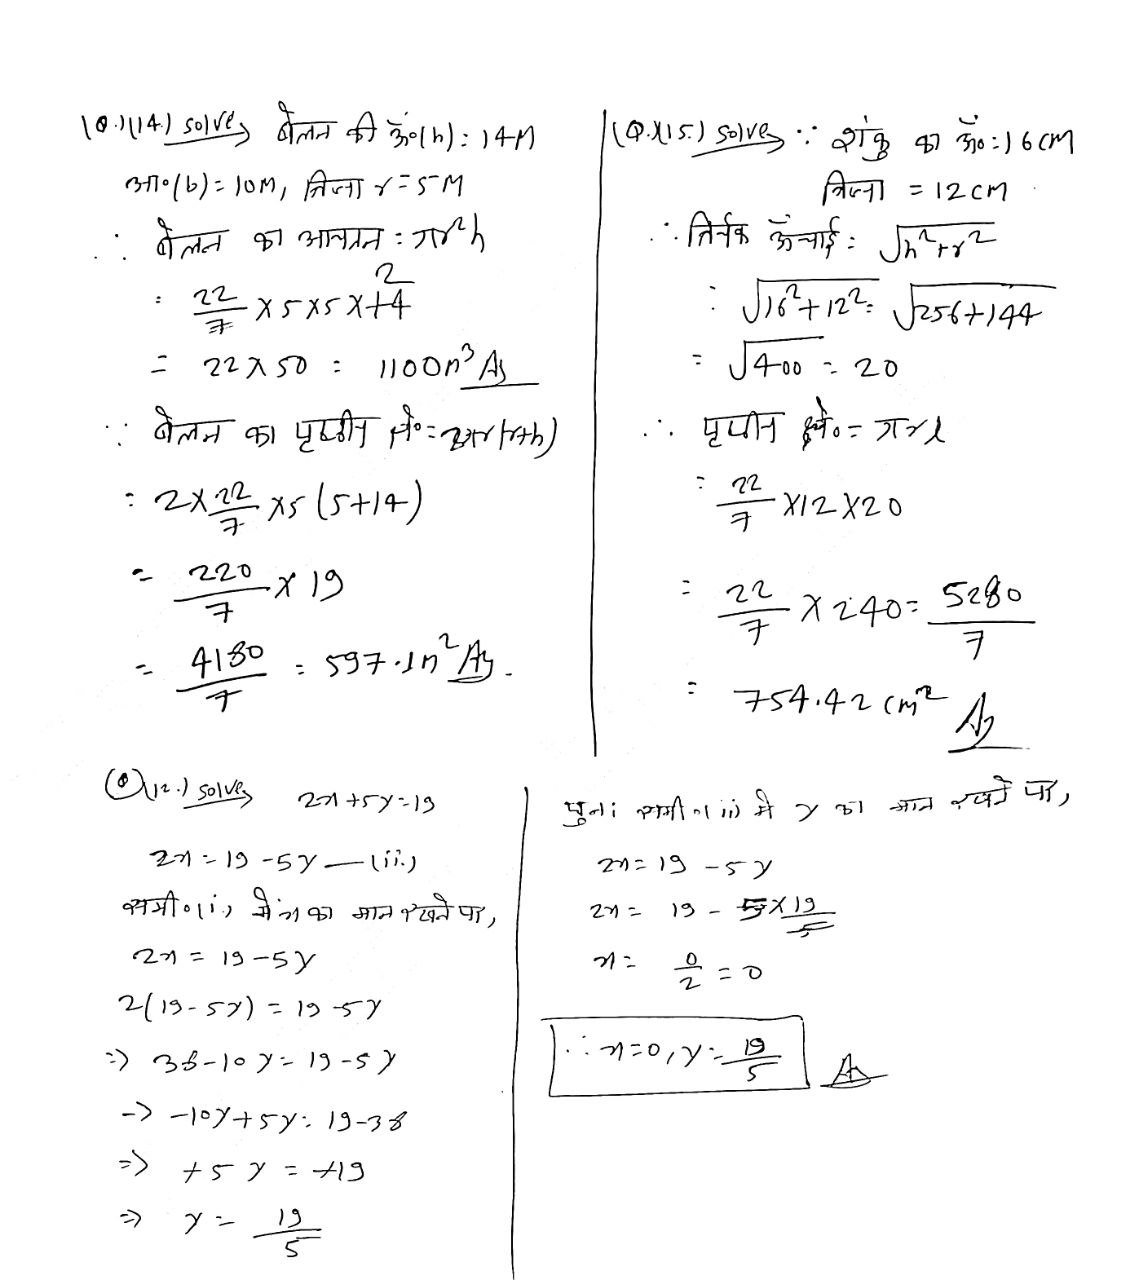 (Q.)(14.) solve → बेलन की ऊँ०(h) = 14M
आ०(b) = 10M, त्रिज्या r = 5M
∴ बेलन का आयतन = πr²h
= 22/7 × 5 × 5 × 14 2
= 22 × 50 = 1100m³ Ans
∵ बेलन का पृष्ठीय क्षे० = 2πr(r+h)
= 2 × 22/7 × 5 (5+14)
= 220/7 × 19
= 4180/7 = 597.1m² Ans.
(Q.)(15.) solve → ∵ शंकु का ऊँ० = 16cm
त्रिज्या = 12cm
∴ तिर्यक ऊँचाई = √h²+r²
= √16²+12² = √256+144
= √400 = 20
∴ पृष्ठीय क्षे० = πrl
= 22/7 × 12 × 20
= 22/7 × 240 = 5280/7
= 754.42 cm² Ans
(Q)(12.) solve → 2x+5y=19
2x = 19 - 5y — (ii.)
समी० (i) में x का मान रखने पर,
2x = 19 - 5y
2(19-5y) = 19 - 5y
⇒ 38 - 10y = 19 - 5y
→ -10y + 5y = 19 - 38
⇒ +5y = +19
⇒ y = 19/5
पुनः समी० (ii) में y का मान रखने पर,
2x = 19 - 5y
2x = 19 - 5 × 19/5
x = 0/2 = 0
∴ x = 0, y = 19/5 A